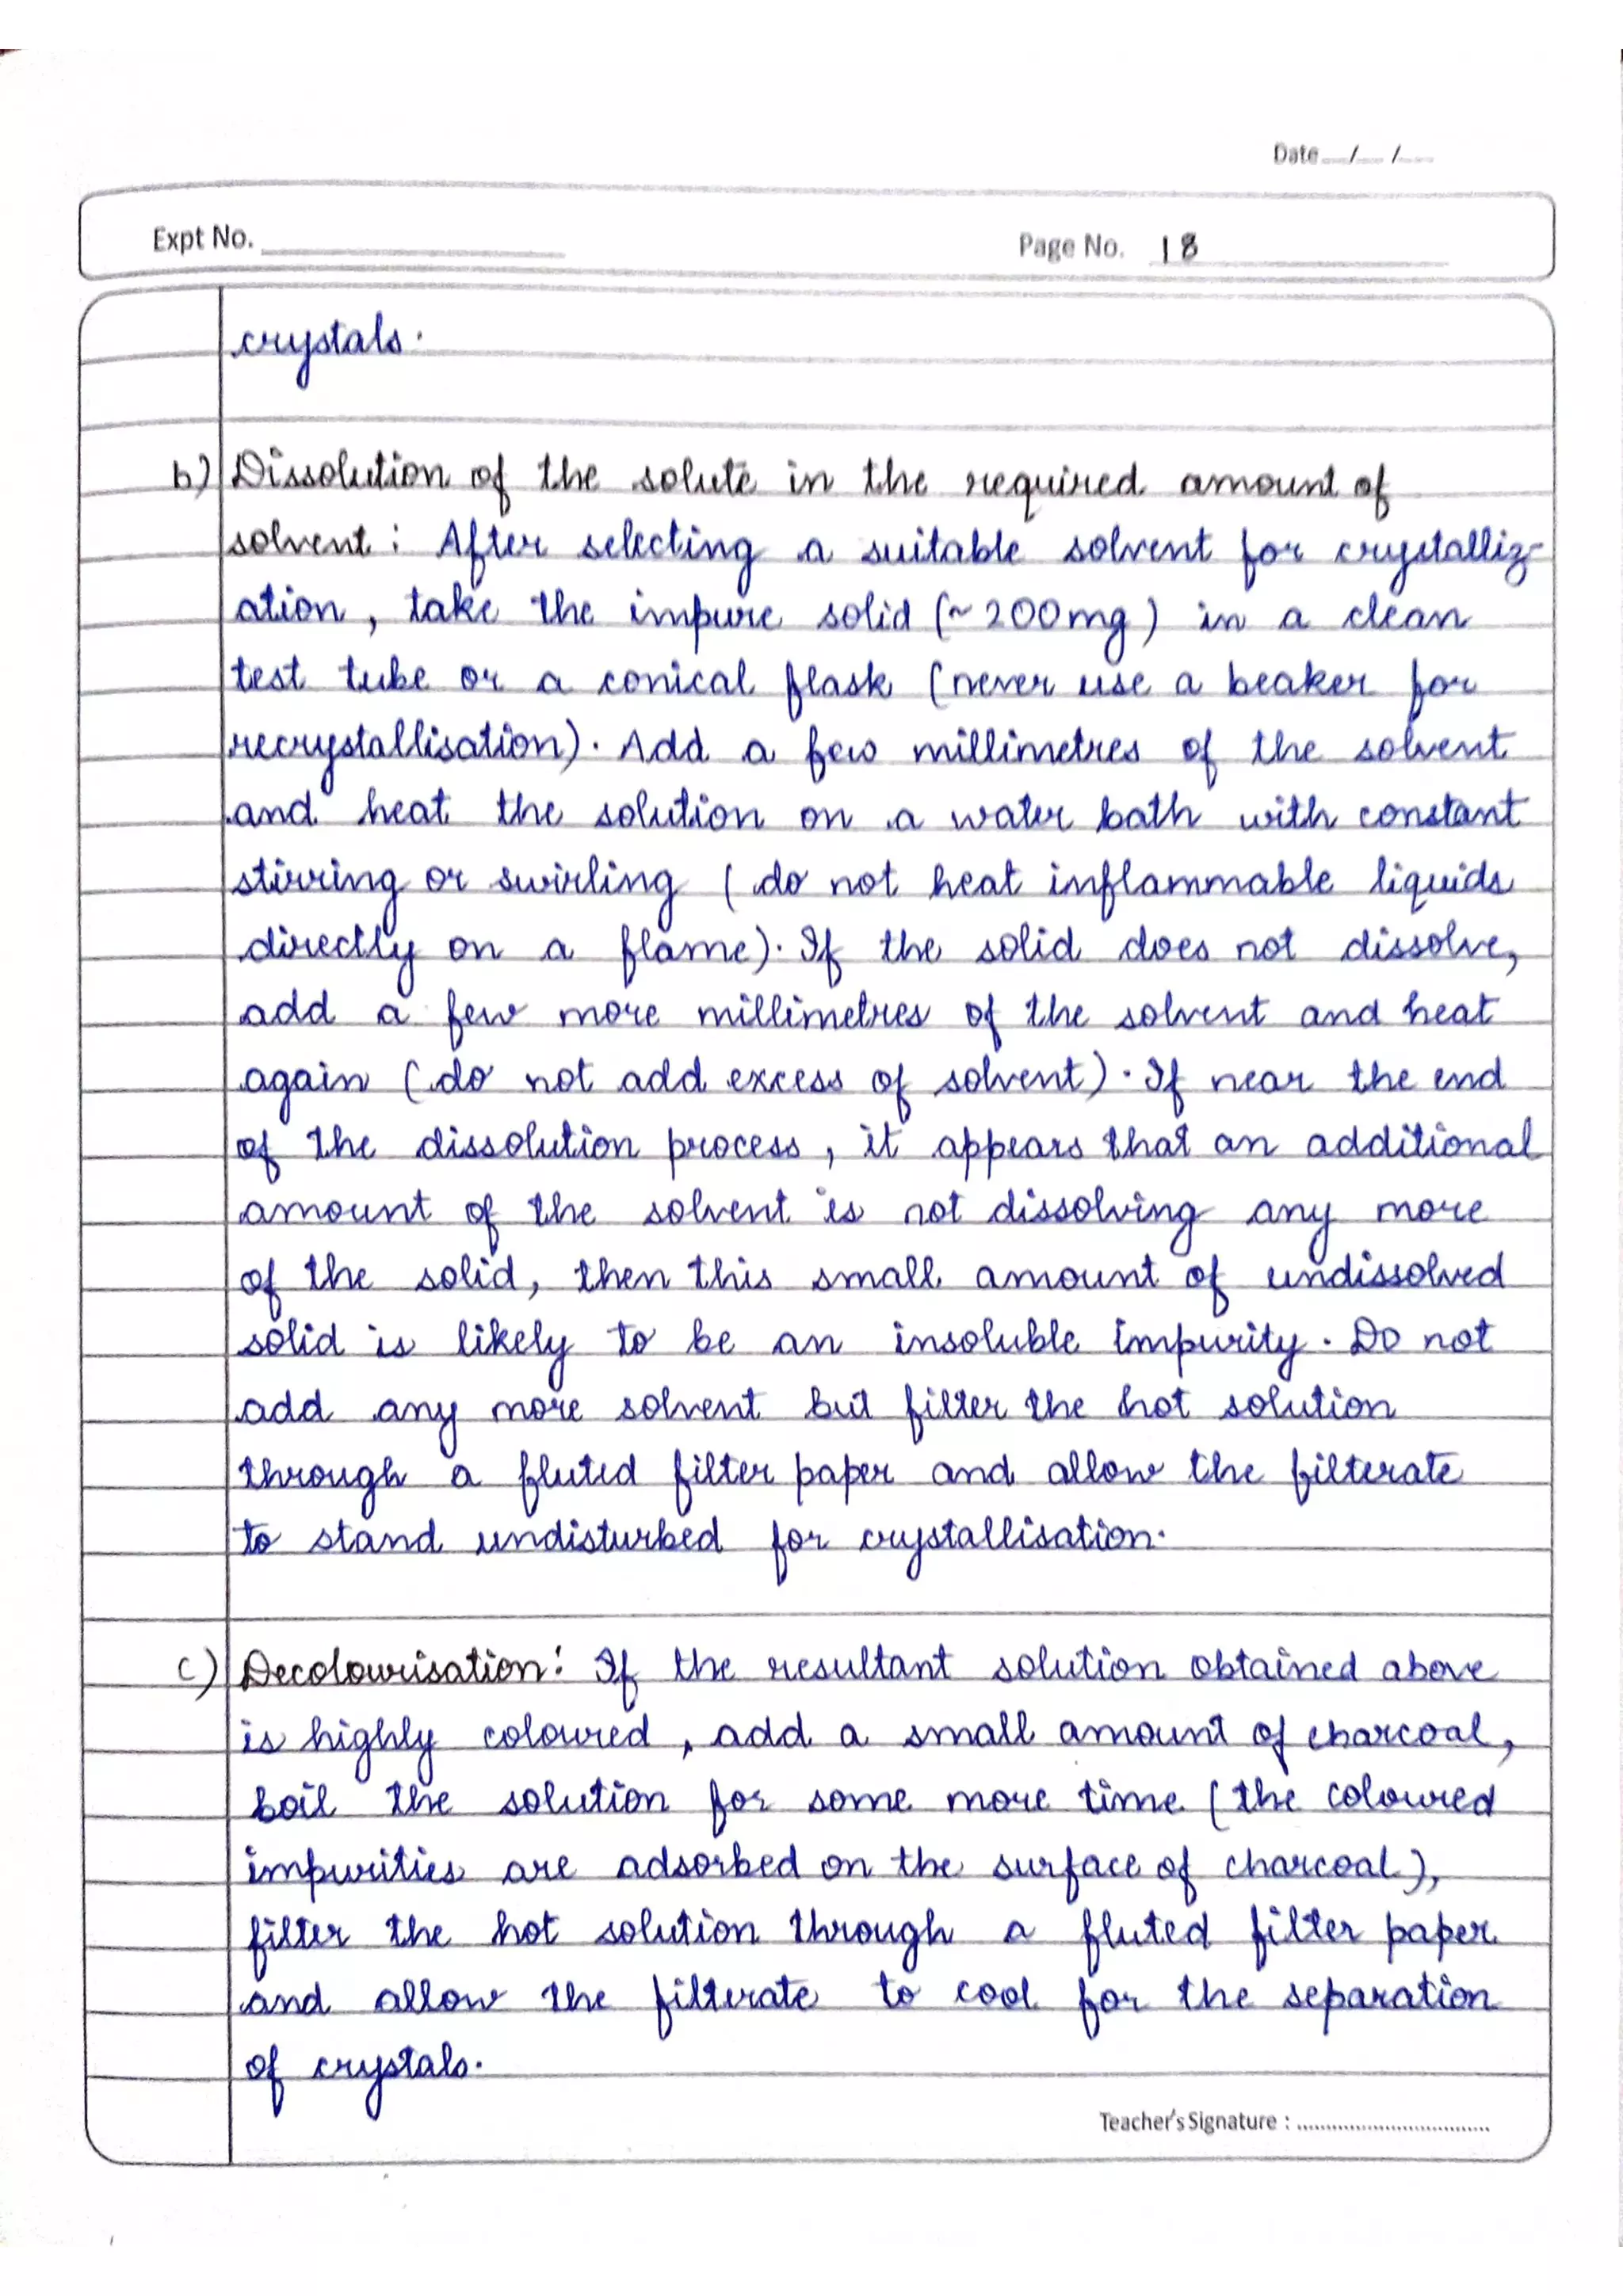 Date __/__/__
Expt No.
Page No. 18
crystals.
b) Dissolution of the solute in the required amount of
solvent: After selecting a suitable solvent for crystalliz-
ation, take the impure solid (~200mg) in a clean
test tube or a conical flask (never use a beaker for
recrystallisation). Add a few millimetres of the solvent
and heat the solution on a water bath with constant
stirring or swirling (do not heat inflammable liquids
directly on a flame). If the solid does not dissolve,
add a few more millimetres of the solvent and heat
again (do not add excess of solvent). If near the end
of the dissolution process, it appears that an additional
amount of the solvent is not dissolving any more
of the solid, then this small amount of undissolved
solid is likely to be an insoluble impurity. Do not
add any more solvent but filter the hot solution
through a fluted filter paper and allow the filterate
to stand undisturbed for crystallisation.
c) Decolourisation: If the resultant solution obtained above
is highly coloured, add a small amount of charcoal,
boil the solution for some more time (the coloured
impurities are adsorbed on the surface of charcoal),
filter the hot solution through a fluted filter paper
and allow the filterate to cool for the separation
of crystals.
Teacher's Signature : ................................